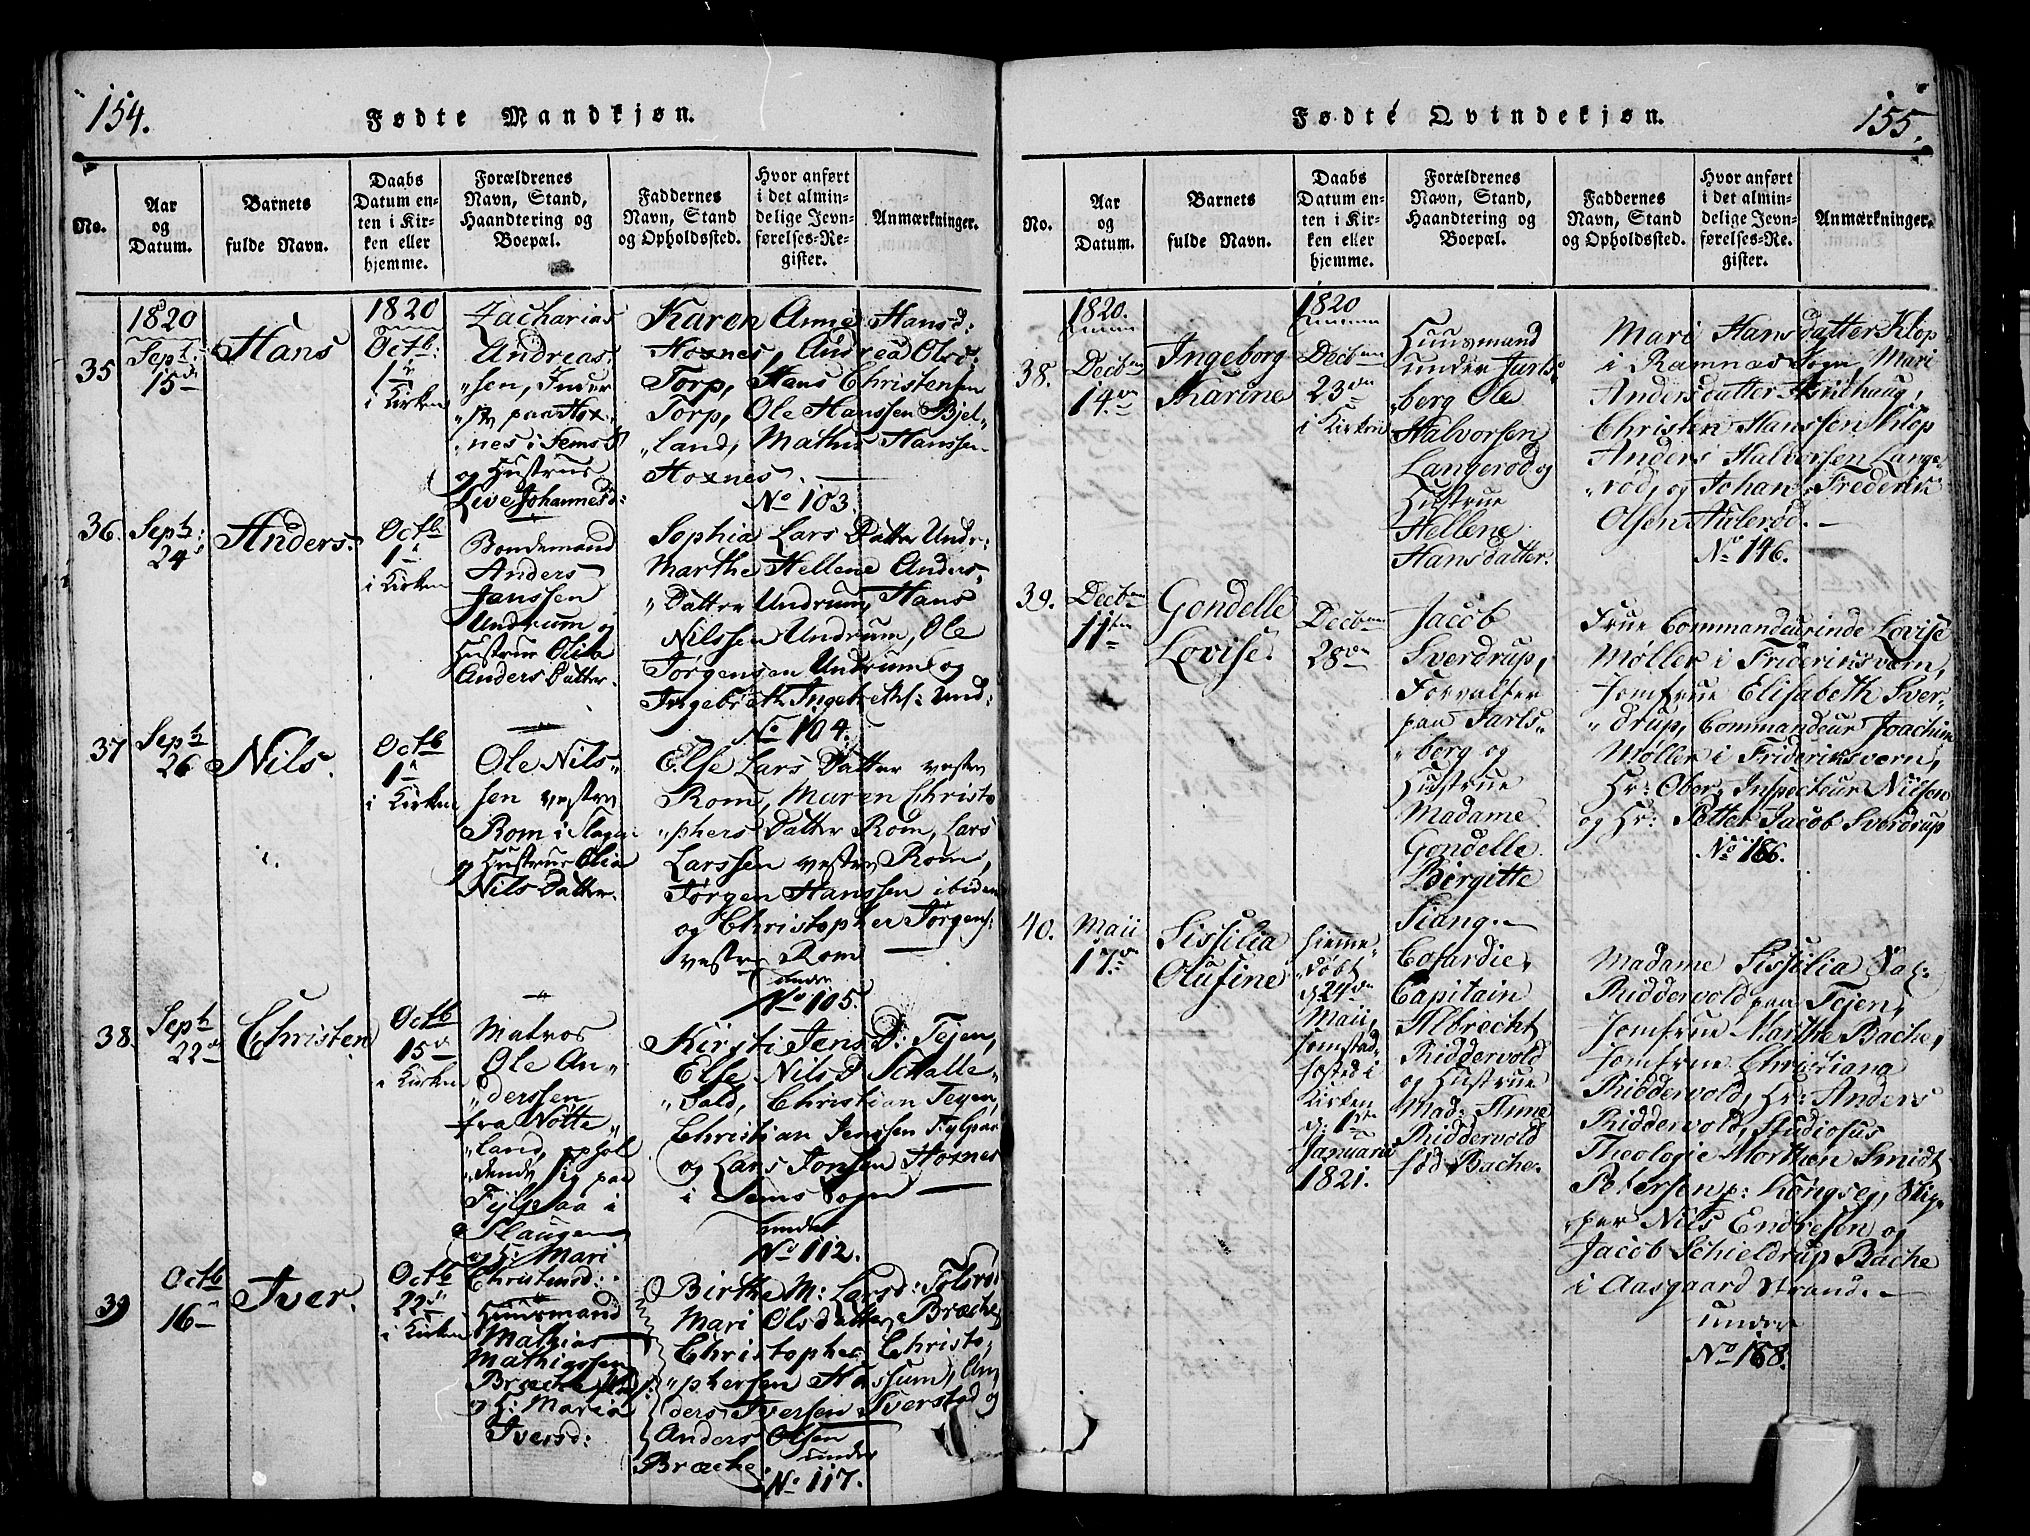 154.
Fødte Mandkjøn.
No.
Aar
og
Datum.
Barnets
fulde Navn.
Daabs
Datum en-
ten i Kir-
ken eller
hjemme.
Forældrenes
Navn, Stand,
Haandtering og
Boepæl.
Faddernes
Navn, Stand
og Opholdssted.
Hvor anført
i det almin-
delige Jevn-
førelses-Re-
gister.
Anmærkninger.
35
1820
Sept:
15de
Hans
1820
Octb:
1ste
i Kirken
Zacharias
Andreas-
"sen, Inder-
"st paa Hox-
"nes i Sems S
og Hustrue
Live Johannesd:
Karen Anne Hansd:
Hoxnes, Andrea Olsd:
Torp, Hans Christensen
Torp, Ole Hanssen Bjel-
"land, Mathis Hanssen
Hoxnes.
No 103.
36.
Septb:
24
Anders.
Octb
1
i Kirken
Bondemand
Anders
Janssen
Undrum og
Hustrue Olia
Anders Datter.
Sophia Lars Datter Undr:
Marthe Hellene Anders-
"Datter Undrum, Hans
Nilssen Undrum, Ole
Jørgensen Undrum og
Ingebreth Ingebreths: Und:
No 104.
37
Septb
26
Nils.
Octb
1
i Kirken
Ole Nils-
sen vestre
Rom i Slagen
og Hustrue Olia
Nils Datter.
Else Lars Datter vestre
Rom, Maren Christo
"phers Datter Rom, Lars
Larssen vestre Rom,
Jørgen Hanssen ibidem
og Christopher Jørgens:
vestre Rom
under
No 105.
38.
Septb
22de
Christen
Octb
15de
i Kirken
Matros
Ole An-
"derssen
fra Nötte-
"land, ophol
"dende sig paa
Fylpaa i
Slaugen
og H: Mari
Christensd:
Kirsti Jens D: Tejen,
Else Nils D Schalle-
"Sald, Christian Tejen,
Christian Jenssen Fylpaa
og Lars Jonsen Hoxnes
i Sems Sogn
under
No 112.
39
Octb
16
Iver.
Octb
22
i Kirken
Huusmand
Mathias
Mathiassen
Bræche
og H: Maria
Iversd:
Birthe M: Larsd: Tolsrød
Mari Olsdatter Bræche
Christopher Christo-
"phersen Hassum, An-
ders Iversen Tverstad og
Anders Olsen
Bræche
under
No 117.
Fødte Qvindekjøn.
155.
No.
Aar
og
Datum.
Barnets
fulde Navn.
Daabs
Datum en-
ten i Kir-
ken eller
hjemme.
Forældrenes
Navn, Stand,
Haandtering og
Boepæl.
Faddernes
Navn, Stand
og Opholdssted.
Hvor anført
i det almin-
delige Jevn-
førelses-Re-
gister.
Anmærkninger.
38.
1820.
Decbr
14de
Ingeborg
Karine
1820
Decbr
23de
i Kirken
Huusmand
under Jarls-
"berg Ole
Halvorsen
Langerød og
Hustrue
Hellene
Hansdatter.
Mari Hansdatter Klop
i Ramnæs Sogn, Mari
Andersdatter
Christen Hanssen Klop
Anders Halvorsen Lange-
"rød, og Johan Frederik
Olsen Aulerød.
No 146.
39.
Decbr
11ten
Gondelle
Lovise.
Decbr
28de
Jacob
Sverdrup,
Forvalter
paa Jarls-
"berg og
Hustrue
Madame
Gondelle
Birgitte
Siang.
Frue Commandeurinde Lovise
Møller i Frideriksværn,
Jomfrue Elisabeth Sver-
"drup, Commandeur Joachim
Møller i Frideriksværn,
Hr: Ober Inspecteur Nilson
og Hr: Petter Jacob Sverdrup
No 166.
40.
Maii
17de
Sissilia
Olufine
hieme-
"døbt
d. 24de
Maii,
fremstad-
fæsted i
Kirken
d: 1ste
Januarii
1821.
Cofardie,
Capitain
Albrecht
Riddervold
og Hustrue
Mad: Anne
Riddervold
fød Bache.
Madame Sissilia Sal:
Riddervold paa Tejen,
Jomfrue Marthe Bache,
Jomfrue Christiana
Riddervold, Hr: Anders
Riddervold, Studiosus
Theologie Morthen Smidt
Petersen p: Kongseg, Skip-
"per Nils Endresen og
Jacob Schieldrup Bache
i Aasgaard Strand.
under
No 168.